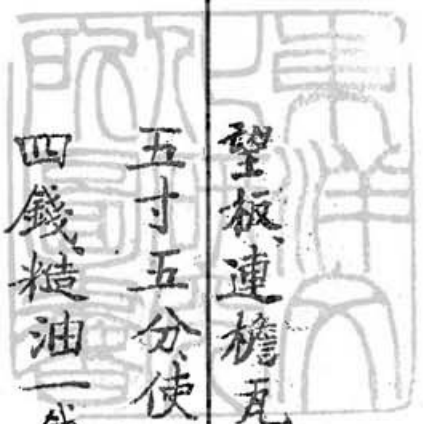 望板連檐瓦
五寸五分使
四錢糙油一